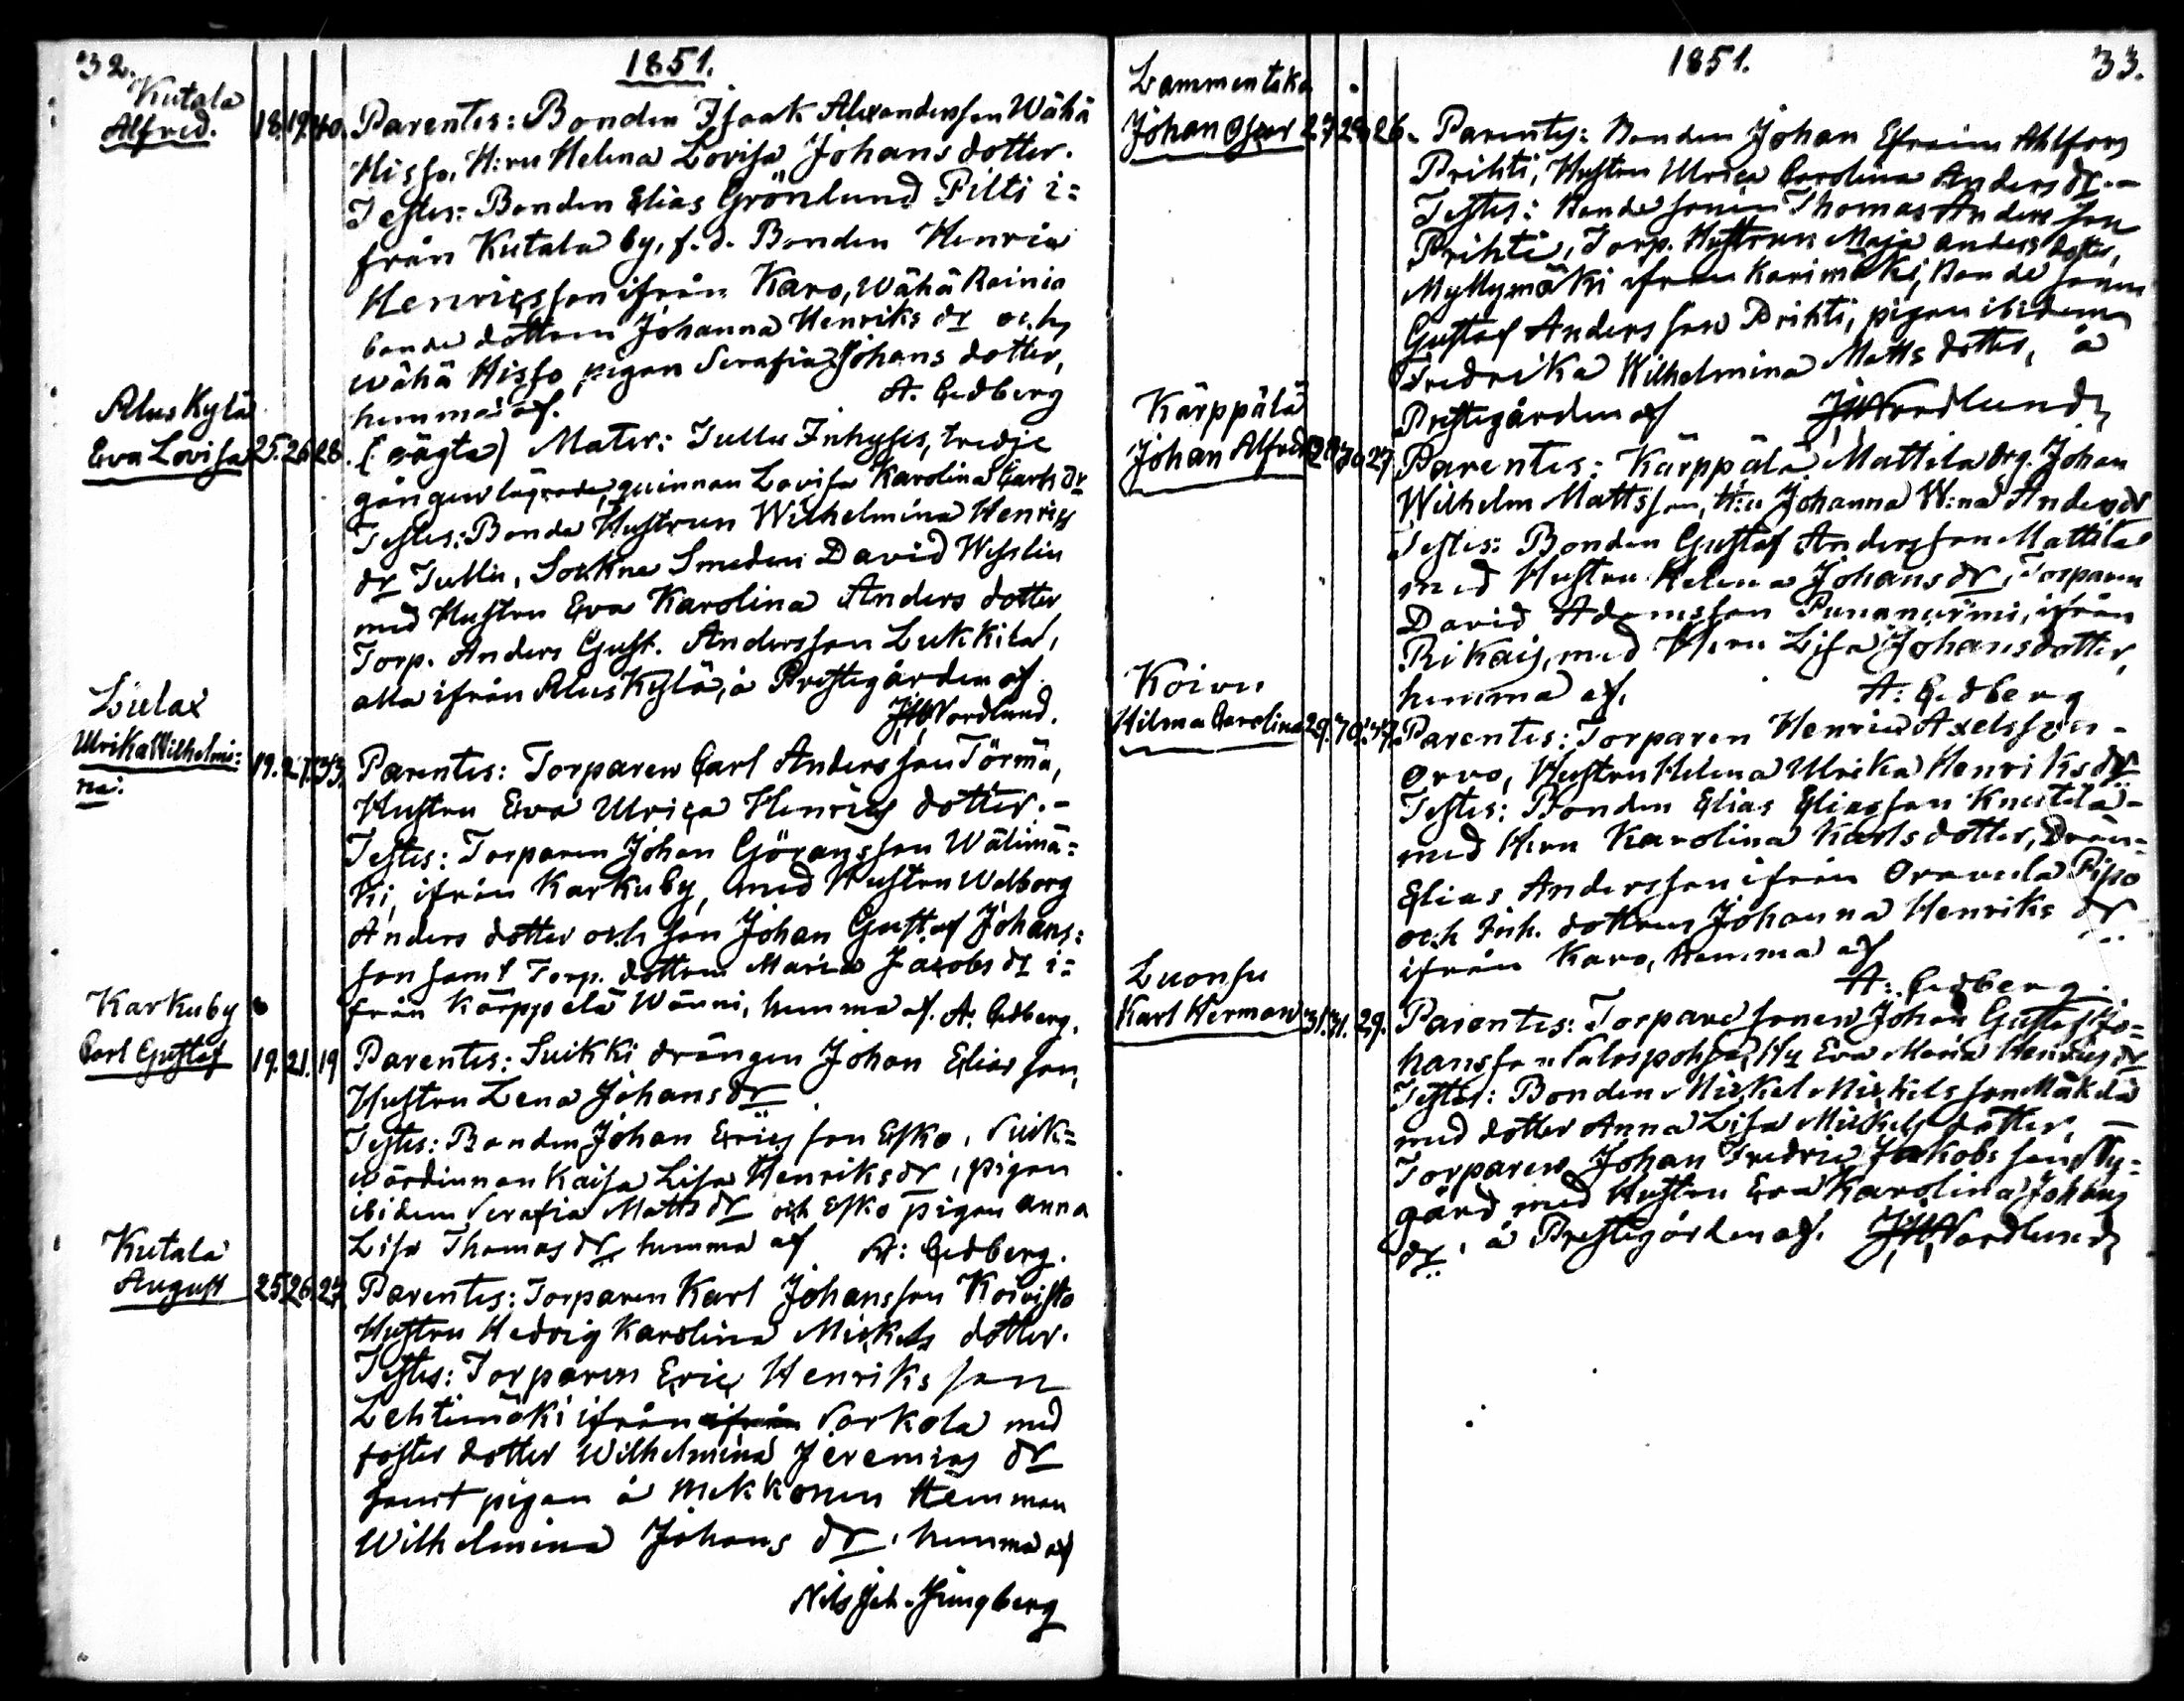 32.
1851.
Kutala
Alfred. 18. 19. 40. Parentes: Bonden Isaak Alexandersson Wähä
Hissa, H:ru Helena Lovisa Johans dotter.
Testes: Bonden Elias Grönlund Pilti i=
från Kutala by, f.d. Bonden Henric
Henricsson ifrån Karo, Wähä Rainio
bonde dottren Johanna Henriks dr och
Wähä Hissa pigan Serafia Johans dotter,
hemma af. A. Cedberg
Alus Kylä
Eva Lovisa 25. 26. 28. (oägta) Mater: Tullu Inhyses, tredje
gången lägrade, quinnan Lovisa Karolina Carls dr
Testes: Bonde Hustrun Wilhelmina Henrics
dr Tullu, Sockne Smeden David Wesslin
med Hustru Eva Karolina Anders dotter
Torp. Anders Gust. Andersson Lukkila,
alla ifrån Alus Kylä, å Prestegården af
JW Nordlund.
Lielax
Ulrika Wilhelmi=
na. 19. 21. 33. Parentes: Torparen Carl Andersson Törmä,
Hustru Eva Ulrica Henrics dotter.-
Testes: Torparen Johan Göransson Wälimä=
ki, ifrån Karkuby, med Hustru Walborg
Anders dotter och son Johan Gustaf Johans=
son samt Torp. dottren Maria Jacobs dr i=
från Kärppelä Wänni, hemma af. A: Cedberg.
Karkuby
Carl Gustaf 19. 21. 19 Parentes: Suikki drängen Johan Eliasson,
Hustru Lena Johans dr
Testes: Bonden Johan Ericsson Esko, Suik=
wärdinnan Kaisa Lisa Henriks dr, pigan
ibidem Serafia Matts dr och Esko pigan Anna
Lisa Thomas dr, hemma af A: Cedberg.
Kutala
August 25. 26. 27. Parentes: Torparen Karl Johansson Koivisto
Hustru Hedvig Karolina Mickels dotter.
Testes: Torparen Eric Henriksson
Lehtimäki ifrån ifrån Sorkola med
foster dotter Wilhelmina Jeremias dr
samt pigan å Mekkonen Hemman
Wilhelmina Johans dr, hemma af
Nils Joh. Ljungberg
1851.
33.
Lammentaka
Johan Oscar 27. 29. 26. Parentes: Bonden Johan Efraim Ahlfors
Prihti, Hustru Ulrica Carolina Anders dr.-
Testes: Bonde sonen Thomas Andersson
Prihti, Torp. Hustrun Maja Anders dotter,
Myllymäki ifrån Karimäki, Bonde sonen
Gustaf Andersson Prihti, pigan ibidem
Fredrika Wilhelmina Matts dotter, å
Prestegården af JW Nordlund
Kärppälä
Johan Alfred 28. 30. 27. Parentes: Kärppälä Mattila drg. Johan
Wilhelm Mattsson, H:u Johanna W:na Anders dr
Testes: Bonden Gustaf Andersson Mattila
med Hustru Helena Johans dr, Torparen
David Adamsson Punanurmi, ifrån
Rikais, med H:ru Lisa Johansdotter,
hemma af. A: Cedberg
Koivu
Hilma Carolina 29. 30. 37. Parentes: Torparen Henric Axelsson-
Orvo, Hustru Helena Ulrika Henriks dr
Testes: Bonden Elias Eliasson Knuutila-
med H:ru Karolina Karls dotter, Drän=
Elias Andersson ifrån Oravula Pipo
och Inh. dottren Johanna Henriks dr
ifrån Karo, hemma af
A: Cedberg.
Luonsu
Karl Herman 31. 31. 29. Parentes: Torpare sonen Johan Gustaf Jo=
hansson Salospohja, Hu Eva Maria Henrics dr
Testes: Bonden Mickel Mickelsson Mäkelä
med dotter Anna Lisa Mickels dotter, —
Torparen Johan Fredric Jakobsson Ny=
gård med Hustru Eva Karolina Johans
dr, å Prestegården af. JW Nordlund